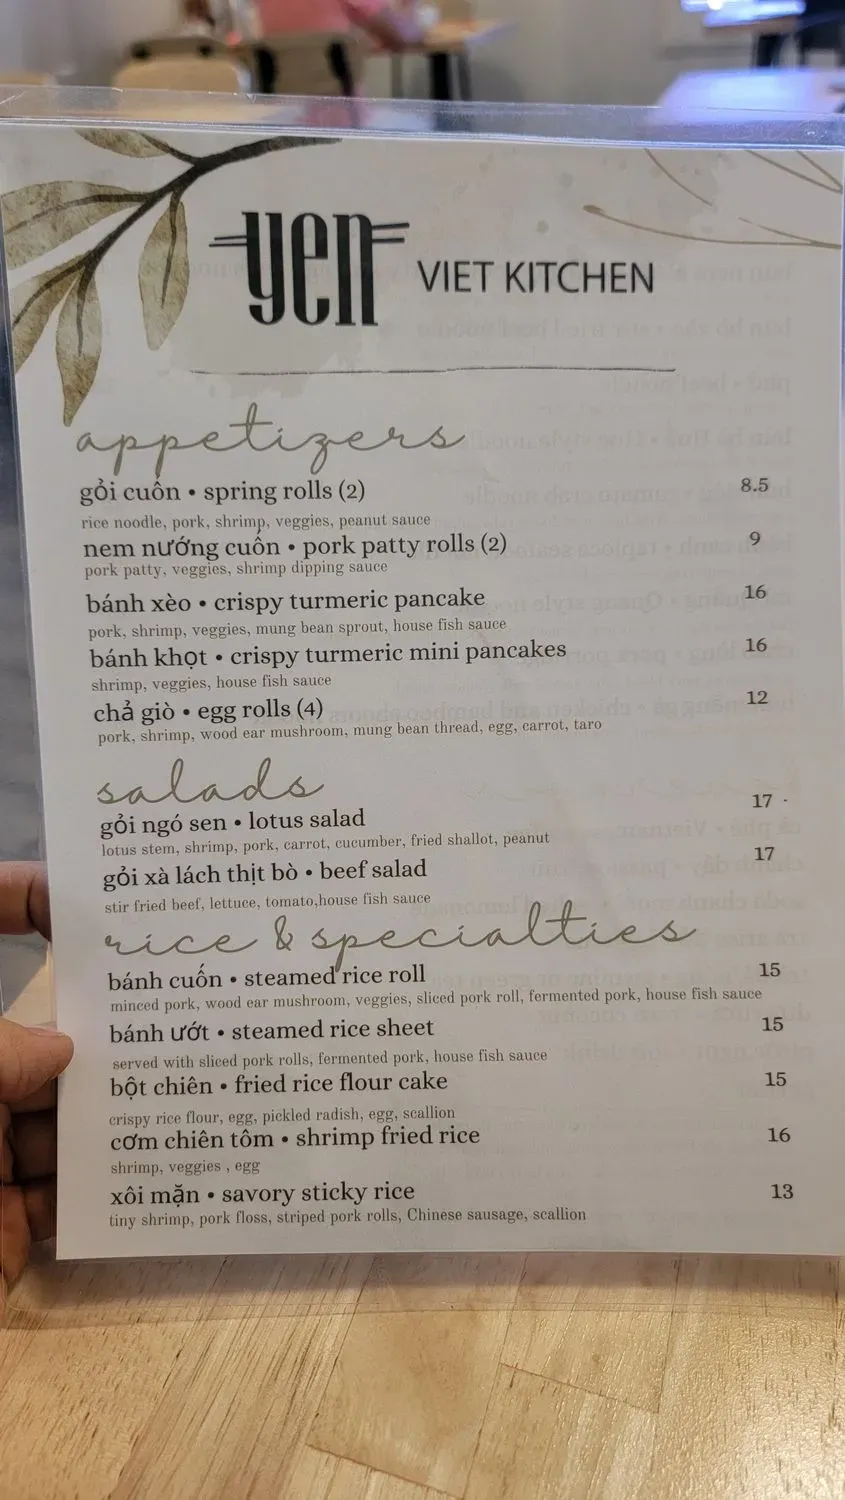 yen VIET KITCHEN
appetizers
gỏi cuốn • spring rolls (2) 8.5
rice noodle, pork, shrimp, veggies, peanut sauce
nem nướng cuốn • pork patty rolls (2) 9
pork patty, veggies, shrimp dipping sauce
bánh xèo • crispy turmeric pancake 16
pork, shrimp, veggies, mung bean sprout, house fish sauce
bánh khọt • crispy turmeric mini pancakes 16
shrimp, veggies, house fish sauce
chả giò • egg rolls (4) 12
pork, shrimp, wood ear mushroom, mung bean thread, egg, carrot, taro
salads
gỏi ngó sen • lotus salad 17
lotus stem, shrimp, pork, carrot, cucumber, fried shallot, peanut
gỏi xà lách thịt bò • beef salad 17
stir fried beef, lettuce, tomato,house fish sauce
rice & specialties
bánh cuốn • steamed rice roll 15
minced pork, wood ear mushroom, veggies, sliced pork roll, fermented pork, house fish sauce
bánh ướt • steamed rice sheet 15
served with sliced pork rolls, fermented pork, house fish sauce
bột chiên • fried rice flour cake 15
crispy rice flour, egg, pickled radish, egg, scallion
cơm chiên tôm • shrimp fried rice 16
shrimp, veggies , egg
xôi mặn • savory sticky rice 13
tiny shrimp, pork floss, striped pork rolls, Chinese sausage, scallion